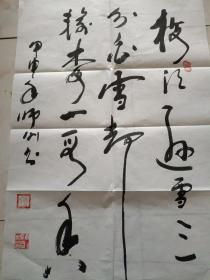 梅须逊雪三
分白雪却
输梅一段香
甲申年师训书